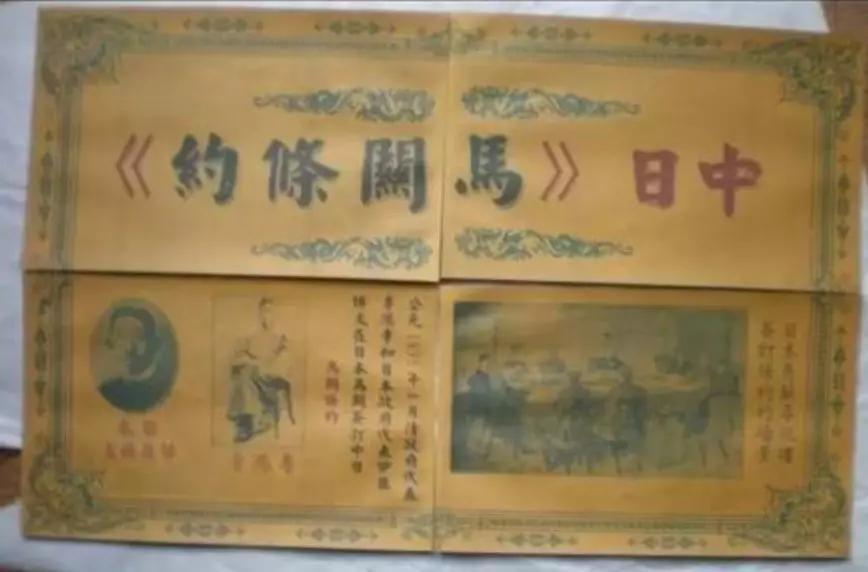 中日《馬關條約》
日本馬關春帆樓
签訂條約的場景
公元一八年四月清政府代表
李鴻章和日本政府代表伊藤
博文在日本馬關签訂中日
馬關條約
李鴻章